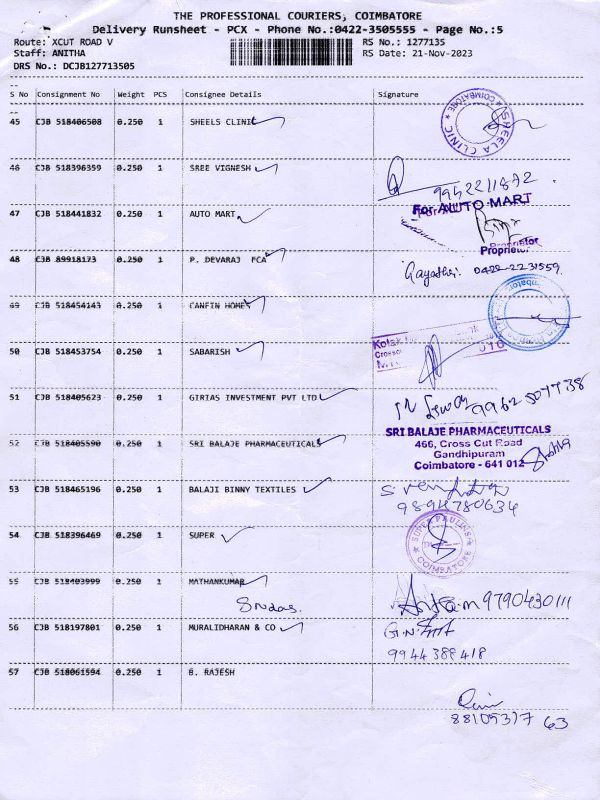 THE PROFESSIONAL COURIERS, COIMBATORE
Delivery Runsheet - PCX - Phone No.:0422-3505555 - Page No.:5
Route: XCUT ROAD V RS No.: 1277135
Staff: ANITHA RS Date: 21-Nov-2023
DRS No.: DCJB127713505
S No Consignment No Weight PCS Consignee Details Signature
45 CJB 518406508 0.250 1 SHEELS CLINIC
SHEELA CLINIC COIMBATORE
46 CJB 518396359 0.250 1 SREE VIGNESH
9942211872
47 CJB 518441832 0.250 1 AUTO MART
For AUTO MART
Proprietor
48 CJB 89918173 0.250 1 P. DEVARAJ FCA
Gayathri. 0422-2231559.
49 CJB 518454143 0.250 1 CANFIN HOMES
50 CJB 518453754 0.250 1 SABARISH
Kotak
51 CJB 518405623 0.250 1 GIRIAS INVESTMENT PVT LTD
9962507738
52 CJB 518405590 0.250 1 SRI BALAJE PHARMACEUTICALS
SRI BALAJE PHARMACEUTICALS
466, Cross Cut Road
Gandhipuram
Coimbatore - 641 012
53 CJB 518465196 0.250 1 BALAJI BINNY TEXTILES
9894780634
54 CJB 518396469 0.250 1 SUPER
SUPER PAULINS COIMBATORE
55 CJB 518403999 0.250 1 MATHANKUMAR
9790430111
56 CJB 518197801 0.250 1 MURALIDHARAN & CO
9944388418
57 CJB 518061594 0.250 1 B. RAJESH
8810531763